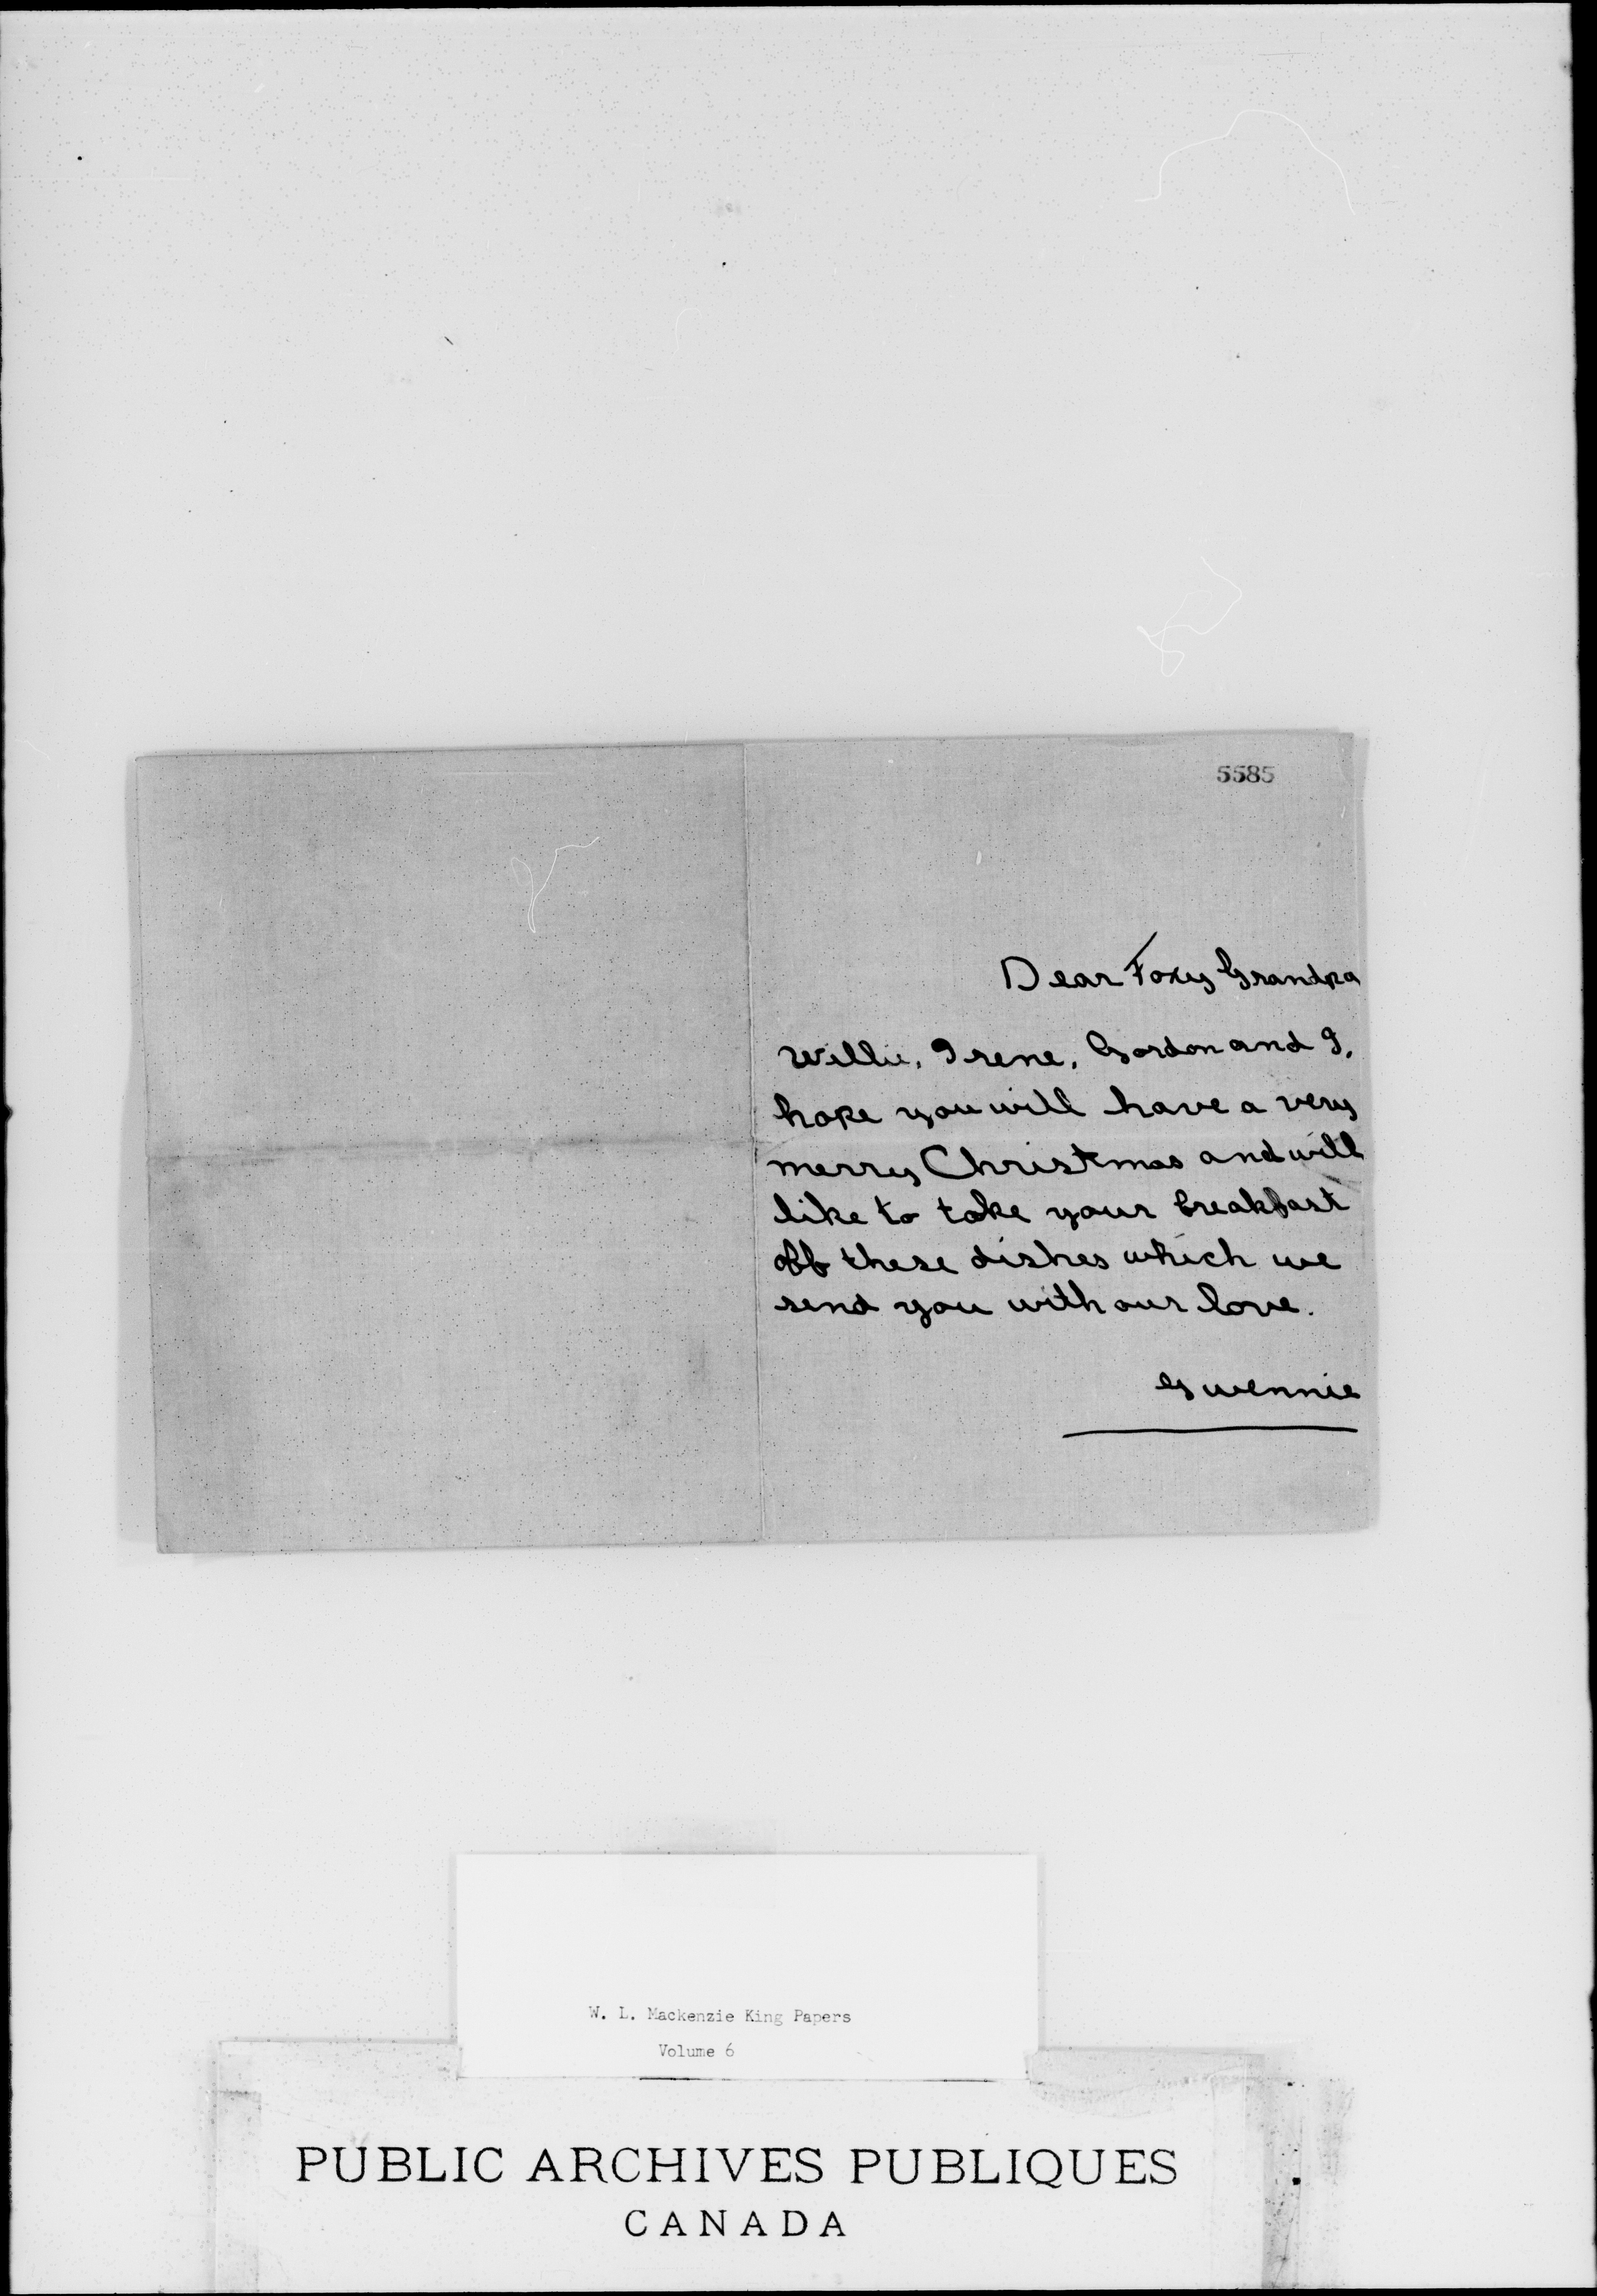 5585
Dear Foxy Grandpa
Willie, Irene, Gordon and I,
hope you will have a very
merry Christmas and will
like to take your breakfast
off these dishes which we
send you with our love.
Gwennie
W. L. Mackenzie King Papers
Volume 6
PUBLIC ARCHIVES PUBLIQUES
CANADA